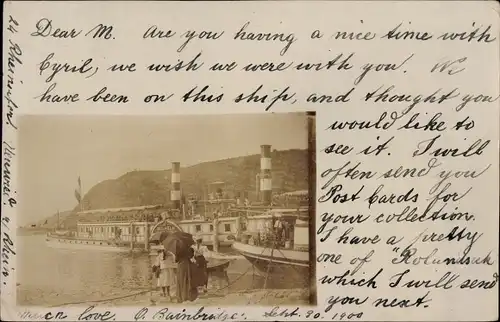 Dear M. Are you having a nice time with
Cyril, we wish we were with you. We
have been on this ship, and thought you
would like to
see it. I will
often send you
Post Cards for
your collection.
I have a pretty
one of "Rolandseck
which I will send
you next.
love. C. Bainbridge. Sept. 20. 1900
24 Rheinstrasse